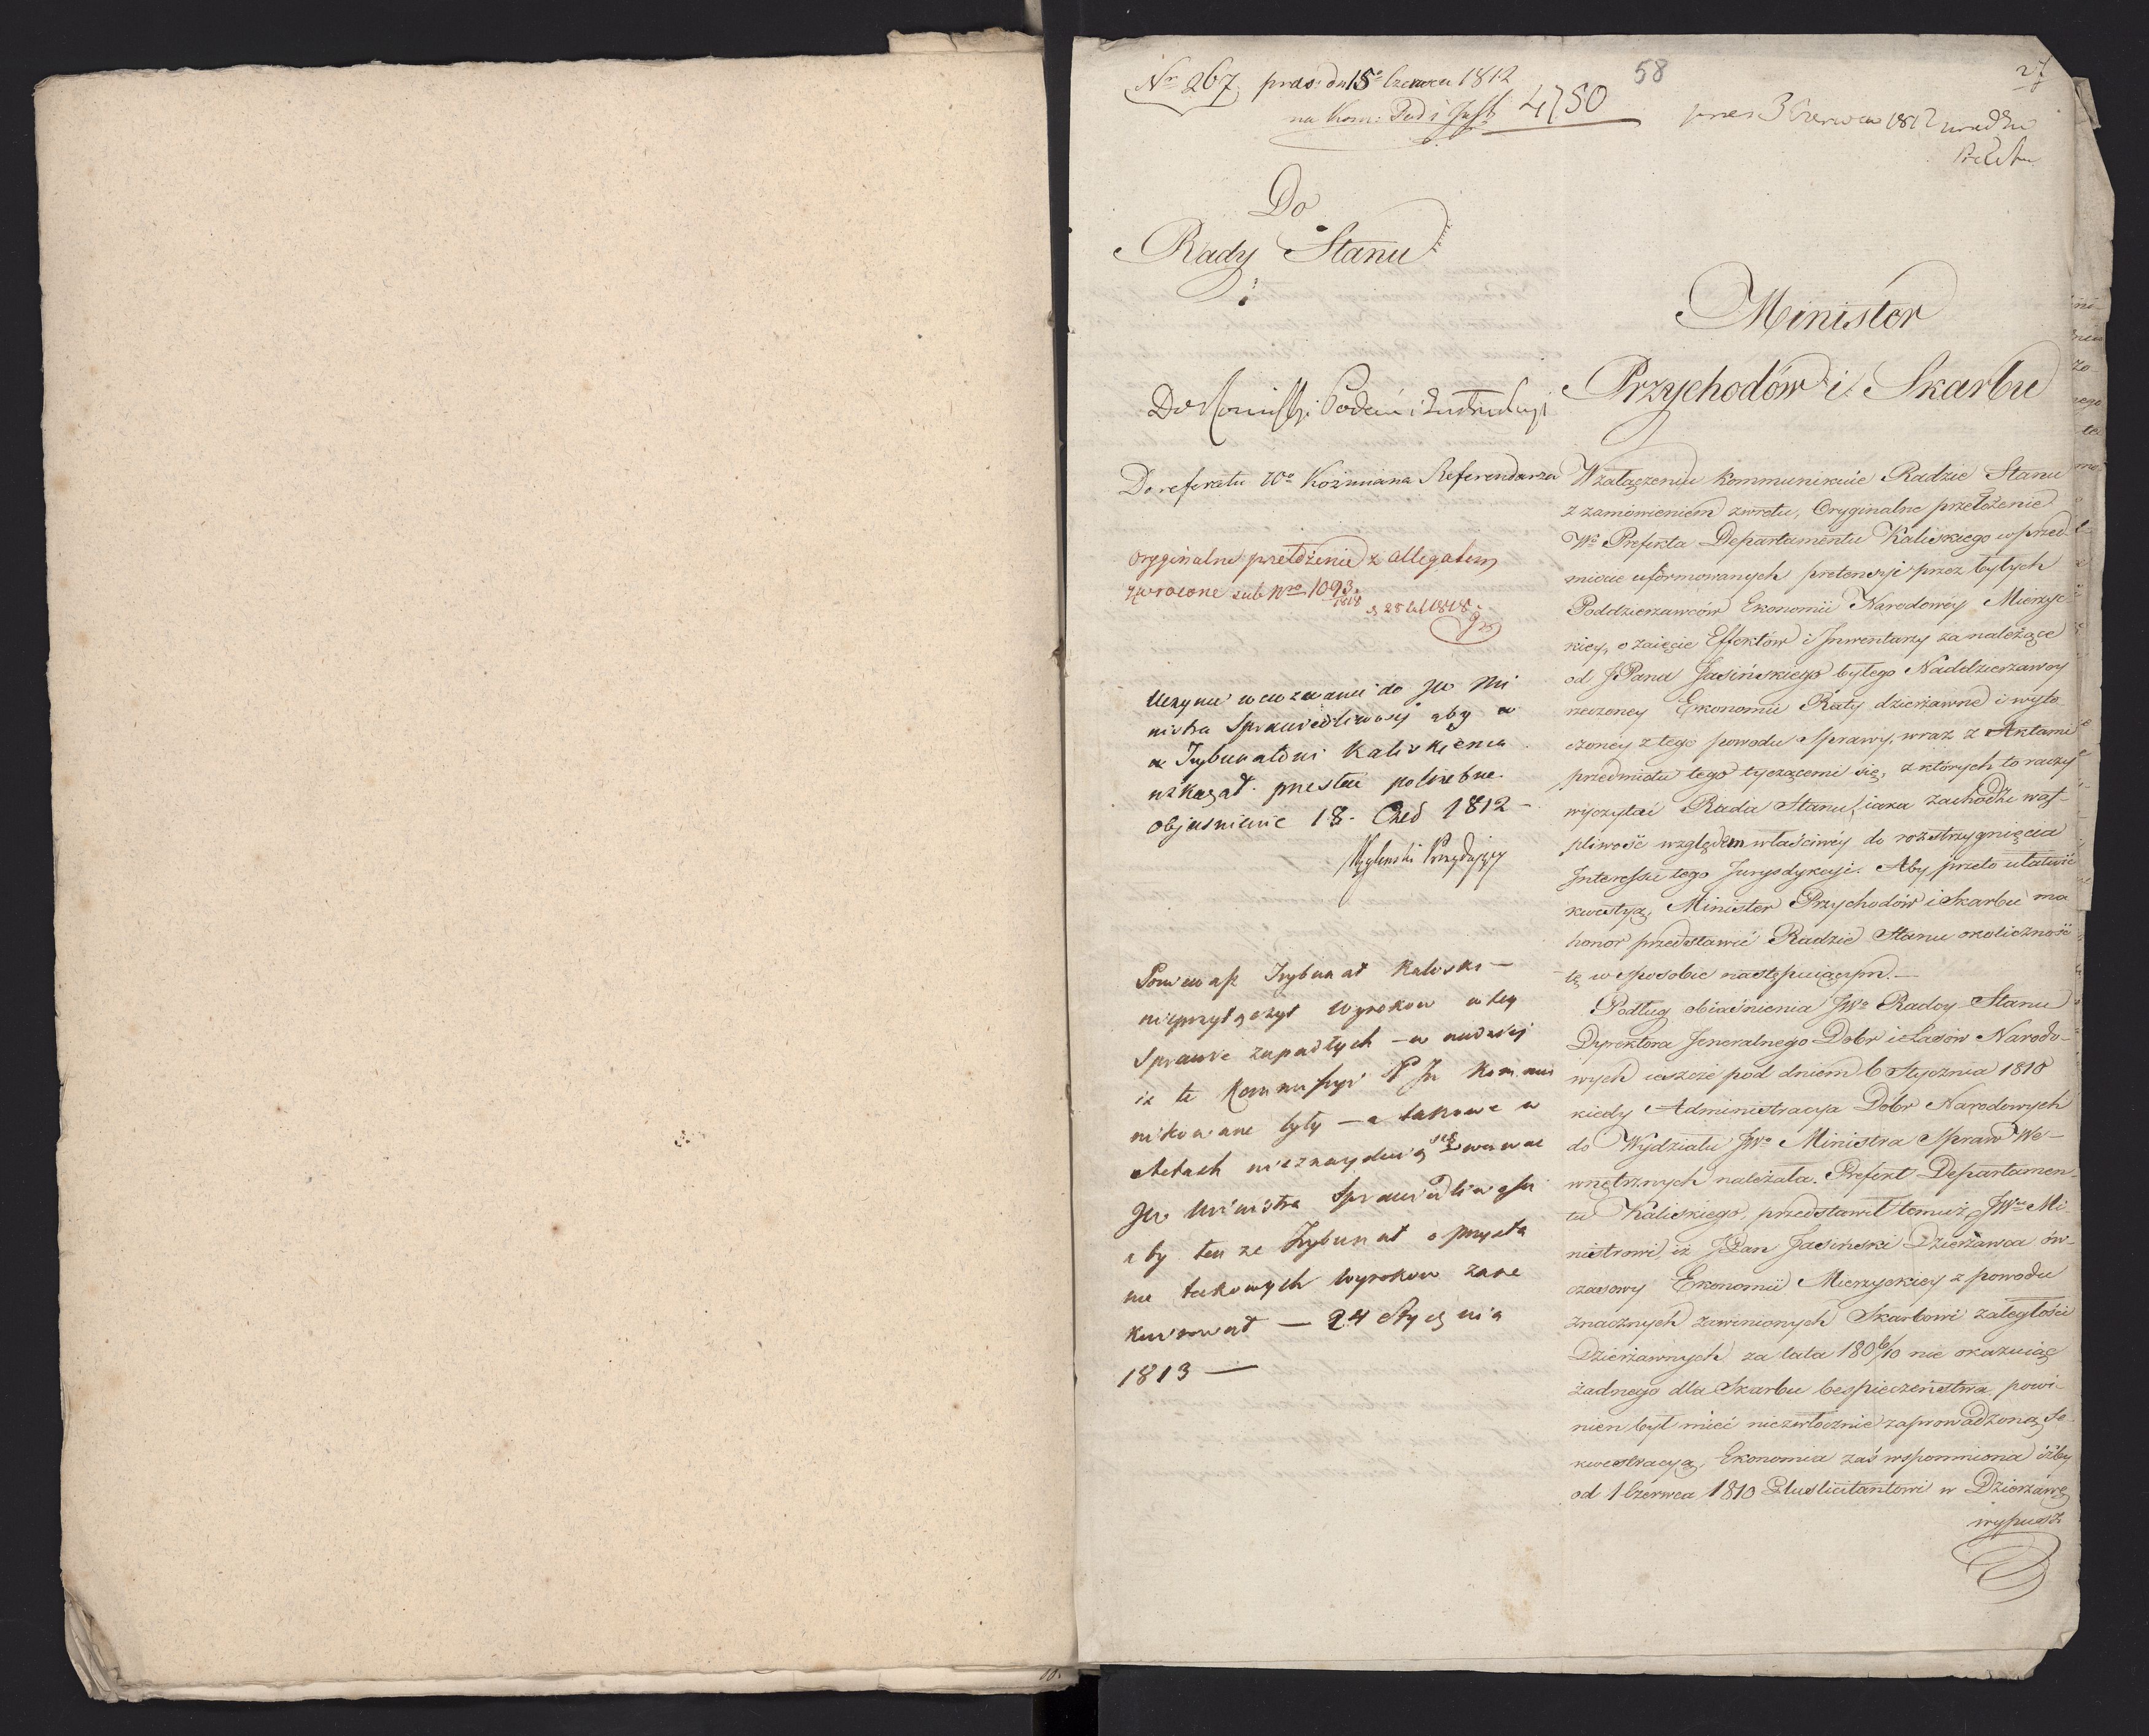 Nr 267 praes: dn 15 Czerwca 1812
na Kom: Pod i Just
4750
58
27
praes 3 Czerwca 1812
Do
Rady Stanu
Do Komissyi Podań i Instrukcyi
Do referatu Wo Koźmiana Referendarza
Oryginalne przełożenie z allegatem
zwrocone sub Nro 1093.
1818
Uczynić wezwanie do JW Mi
nistra Sprawiedliwości aby
Trybunałowi Kaliskiemu
nakazał przesłać potrzebne
objasnienie 18. Czer 1812 –
Poniewasz Trybunał Kaliski –
nieprzyłączył wyrokow w tey
Sprawie zapadłych –
iż te Kommissyi P In Kommu
nikowane były – a takowe w
Aktach nieznayduią się wezwać
JW Ministra Sprawiedliwości
aby ten że Trybunał o przysła
nie takowych wyrokow zare
kwirował – 24 Stycznia
1813 –
Minister
Przychodów i Skarbu
W załączeniu kommunikuie Radzie Stanu
z zamówieniem zwrotu, Oryginalne przełożenie
Wo Prefekta Departamentu Kaliskiego w przed-
miocie uformowanych pretensyi przez byłych
Poddzierzawców Ekonomii Narodowéy Mierzyc-
kiey, o zaięcie Effektów i Inwentarzy za należące
od JPana Jasińskiego byłego Naddzierzawcy
rzeczoney Ekonomii Raty dzierżawne i wyto
czoney z tego powodu Sprawy, wraz z Aktami
przedmiotu tego tyczącemi się, z których to raczy
wyczytać Rada Stanu, iaka zachodzi wąt-
pliwość względem właściwéy do rozstrzygnięcia
Interessu tego Jurysdykcyi. Aby przeto ułatwić
kwestyą, Minister Przychodów i Skarbu ma
honor przedstawić Radzie Stanu okoliczność
tę w sposobie następuiącym. –
Podług obiaśnienia JWo Radcy Stanu
Dyrektora Jeneralnego Dóbr i Lasów Narodo-
wych ieszcze pod dniem 6 Stycznia 1810
kiedy Administracya Dobr Narodowych
do Wydziału JWo Ministra Spraw We-
wnętrznych należała. Prefekt Departamen-
tu Kaliskiego, przedstawił temuż JWmu Mi-
nistrowi, iż JPan Jasiński Dzierżawca ów-
czasowy Ekonomii Mierzyckiey z powodu
znacznych zawinionych Skarbowi zaległości
Dzierżawnych za lata 1806/10 nie okazuiąc
żadnego dla Skarbu bespieczeństwa powi-
nien być mieć niezwłocznie zaprowadzoną Se-
kwestracyą, Ekonomia zaś wspomniona iżby
od 1 Czerwca 1810 Pluslicitantowi w Dzierżawę
wypusz